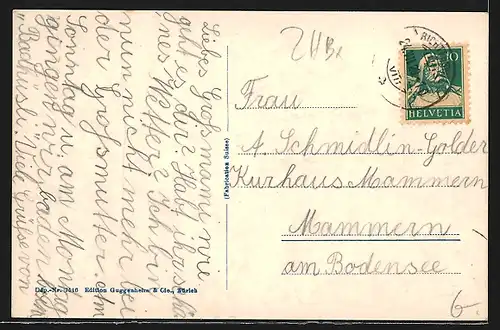 Liebes Großmami wie
geht es dir? Habt ihr schö-
nes Wetter? Ich bin
nun nicht mehr bei
der Großmutter. Am
Sonntag u. am Montag
gingen wir baden beim
"Badhüsli". Viele Grüße von
Dep.-Nr. Edition Guggenheim & Cie., Zürich
(Fabrication Suisse)
Frau
A. Schmidlin-Golder
Kurhaus Mammern
Mammern
am Bodensee
10
HELVETIA